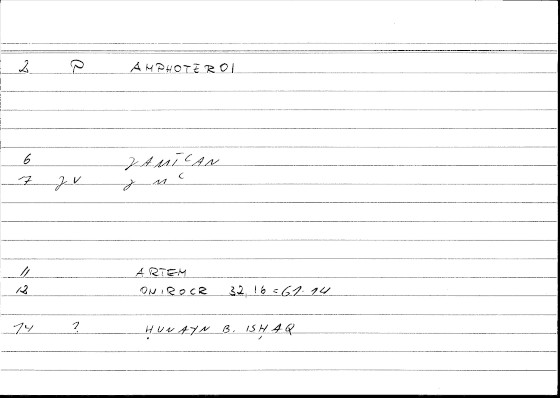 2 P AMPHOTEROI
6 ǧAMĪʿAN
7 ǧV ǧ m ʿ
11 ARTEM
12 ONIROCR 32,16 = 61.14
14 ? ḤUNAYN B. ISḤAQ